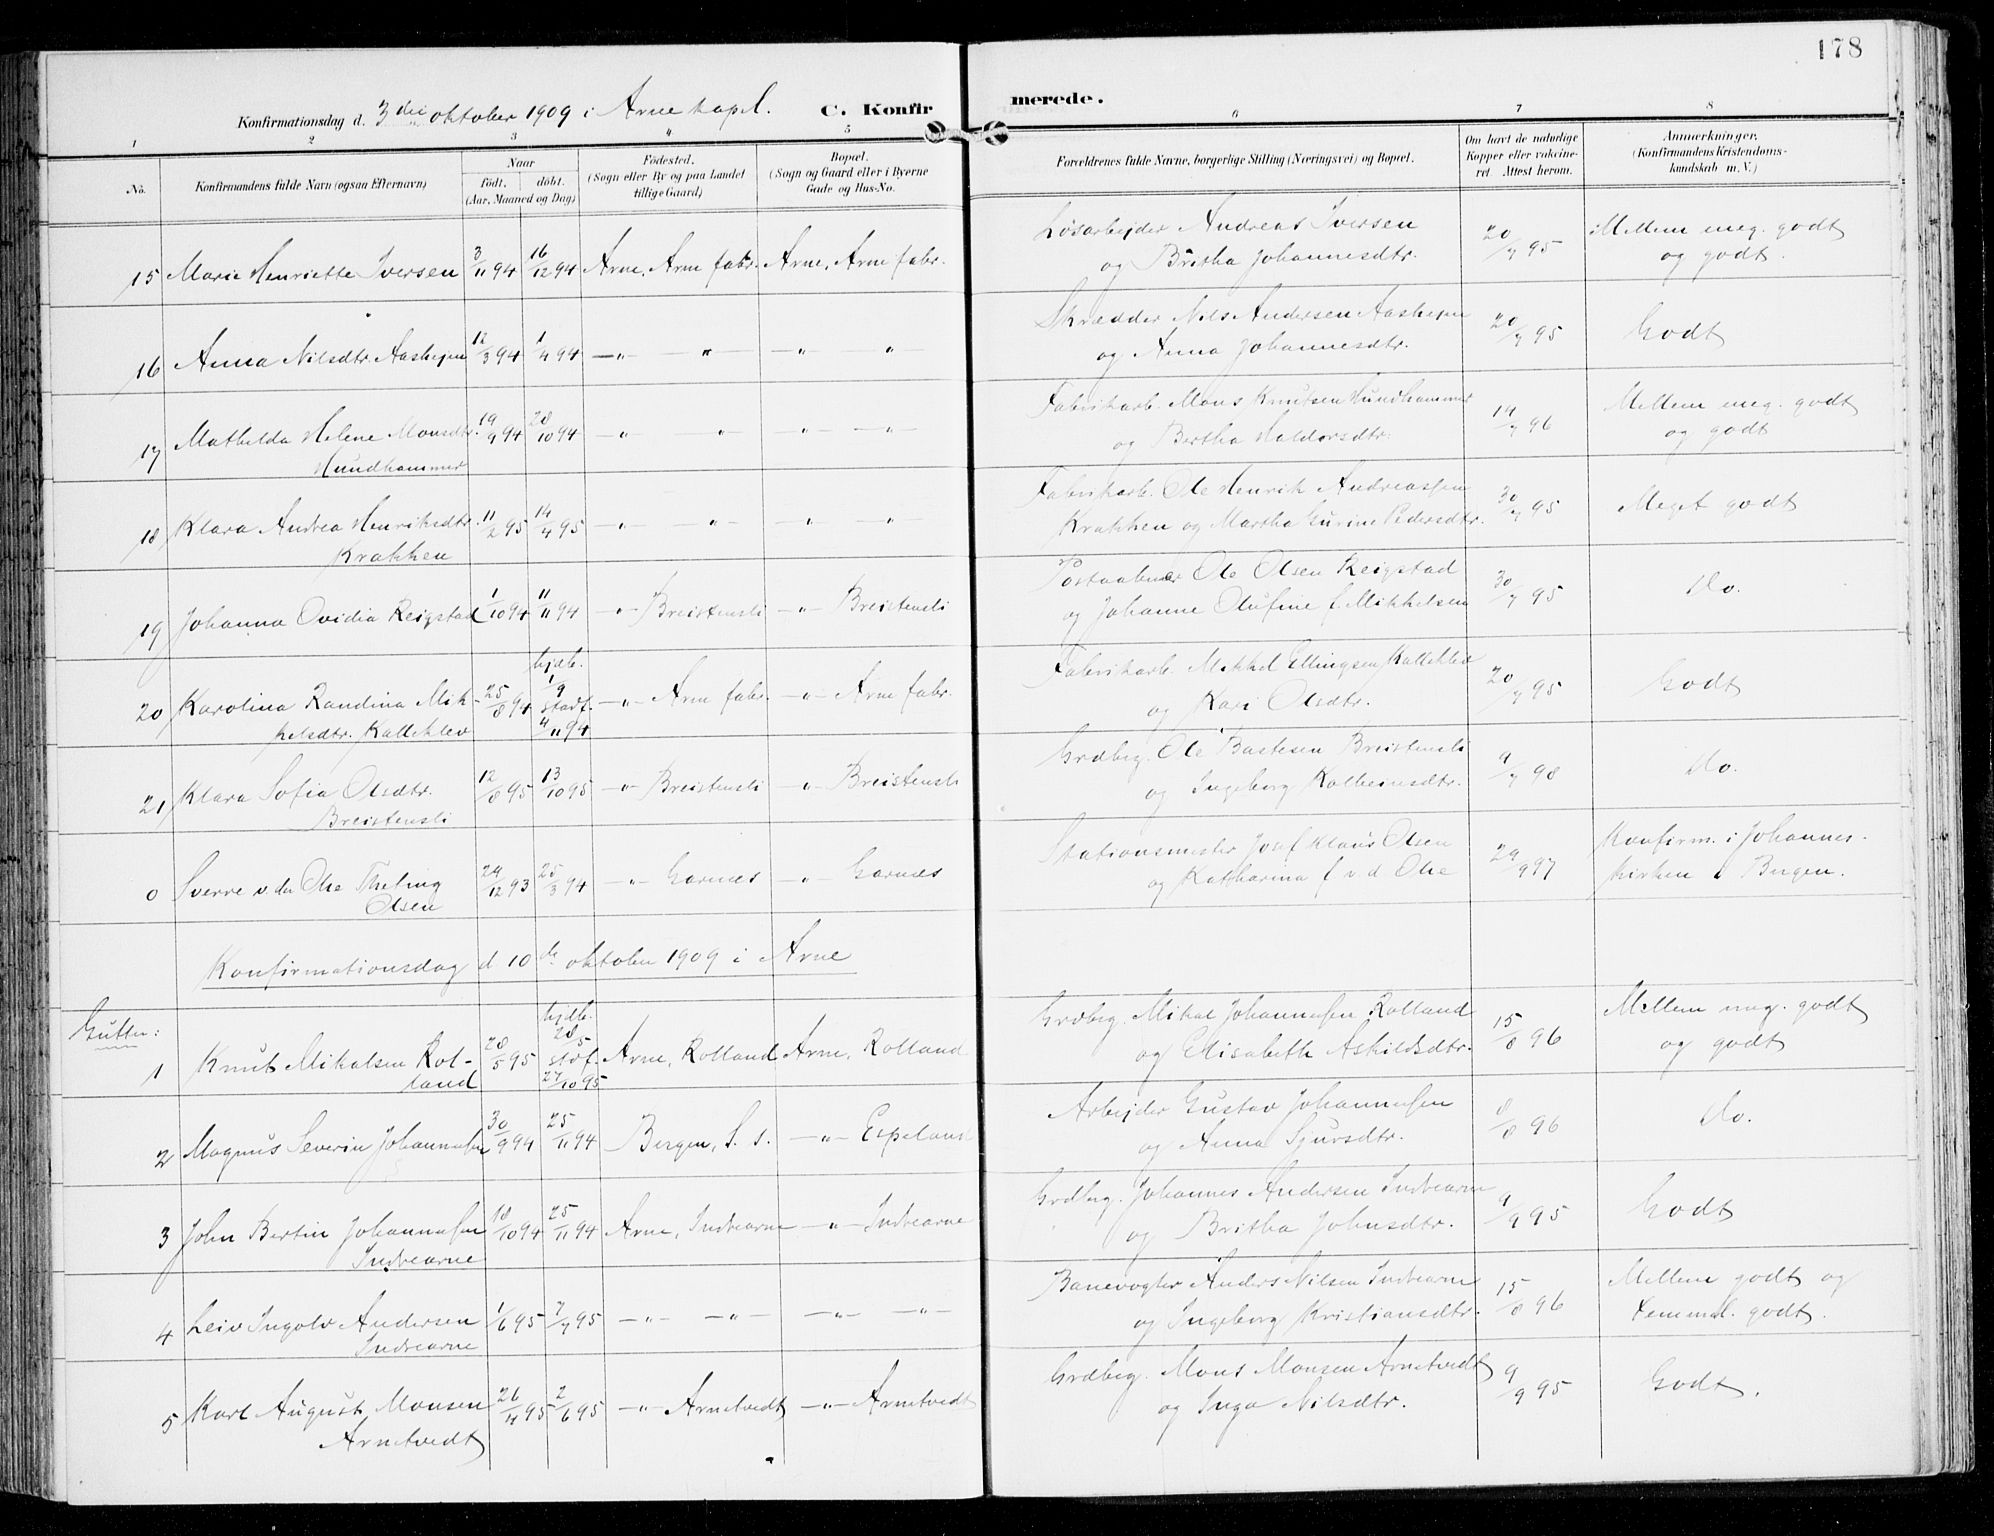 178
Konfirmationsdag d. 3die oktober 1909 i Arne kapel. C. Konfirmerede.
1 2 3 4 5 6 7 8
No. Konfirmandens fulde Navn (ogsaa Efternavn) Naar født. døbt. (Aar, Maaned og Dag) Fødested. (Sogn eller By og paa Landet tillige Gaard) Bopæl. (Sogn og Gaard eller i Byerne Gade og Hus-No. Forældrenes fulde Navne, borgerlige Stilling (Næringsvei) og Bopæl. Om havt de naturlige Kopper eller vakcineret. Attest herom. Anmærkninger. (Konfirmandens Kristendomskundskab m. V.)
15 Marie Henriette Iversen 3/11 94 16/12 94 Arne, Arne fabr. Arne, Arne fabr. Løsarbejder Andreas Iversen 20/7 95 Mellem meg. godt
og Britha Johannesdtr. og godt.
16 Anna Nilsdtr. Aashejm 12/3 94 1/4 94 —"— " " " Skrædder Nils Andersen Aashejm 20/7 95 Godt
og Anna Johannesdtr.
17 Mathilda Helene Monsdtr. 19/9 94 28/10 94 —"— —"— —"— —"— Fabrikarb. Mons Knutsen Hundhammer 14/7 96 Mellem meg. godt
Hundhammer og Bertha Haldorsdtr. og godt
18 Klara Andrea Henriksdtr. 11/2 95 14/4 95 —"— —"— " " Fabrikarb. Ole Henrik Andreassen 30/7 95 Meget godt
Krakken Krakken og Martha Gurine Pedersdtr.
19 Johanna Ovidia Reigstad 1/10 94 11/11 94 —"— Breistensli —"— Breistensli Postaabner Ole Olsen Reigstad 30/7 95 Do.
og Johanne Olufine f. Mikkelsen
20 Karolina Randina Mik- 25/8 94 hjdb. 1/9 stadf. 4/11 94 —"— Arne fabr. —"— Arne fabr. Fabrikarb. Mikkel Ellingsen Kalleklev 20/7 95 Godt
kelsdtr. Kalleklev og Kari Olsdtr.
21 Klara Sofia Olsdtr. 12/8 95 13/10 95 —"— Breistensli —"— Breistensli Grdbrg. Ole Bastesen Breistensli 9/7 98 Do.
Breistensli og Ingeborg Kolbeinsdtr.
0 Sverre v. der Ohe Theting 29/12 93 25/3 94 —"— Garnes —"— Garnes Stationsmester Josef Klaus Olsen 29/9 97 Konfirm. i Johannes-
Olsen og Katharina f. v. d. Ohe kirken i Bergen.
Konfirmationsdag d. 10de oktober 1909 i Arne
Gutter:
1 Knut Mikalsen Rol- 28/5 95 hjdb. 28/5 stdf. 27/10 95 Arne, Rolland Arne, Rolland Grdbrg. Mikal Johannessen Rolland 15/8 96 Mellem meg. godt
land og Elisabeth Askildsdtr. og godt
2 Magnus Severin Johannessen 30/9 94 25/11 94 Bergen, S. s. —"— Espeland Arbejder Gustav Johannessen 8/8 96 Do.
og Anna Sjursdtr.
3 John Bertin Johannessen 18/10 94 25/11 94 Arne, Indrearne —"— Indrearne Grdbrg. Johannes Andersen Indrearne 9/9 95 Godt
Indrearne og Britha Johnsdtr.
4 Leiv Ingolv Andersen 1/6 95 7/7 95 —"— —"— —"— —"— Banevogter Anders Nilsen Indrearne 15/8 96 Mellem godt og
Indrearne og Ingeborg Kristiansdtr. temmel. godt.
5 Karl August Monsen 26/4 95 2/6 95 —"— Arnetvedt —"— Arnetvedt Grdbrg. Mons Monsen Arnetvedt 9/9 95 Godt.
Arnetvedt og Inga Nilsdtr.